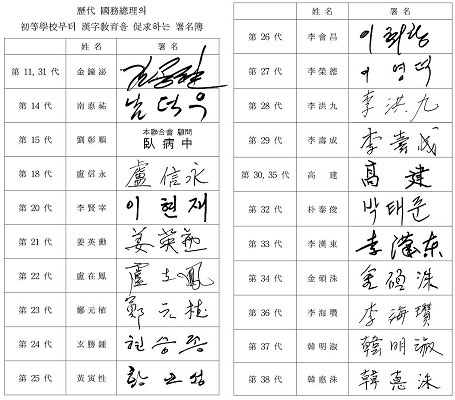 歷代 國務總理의
初等學校부터 漢字敎育을 促求하는 署名簿
姓 名 署 名
第 11, 31 代 金鐘泌 김종필
第 14 代 南悳祐 남덕우
第 15 代 劉彰順 本聯合會 顧問
臥 病 中
第 18 代 盧信永 盧信永
第 20 代 李賢宰 이현재
第 21 代 姜英勳 姜英勳
第 22 代 盧在鳳 盧在鳳
第 23 代 鄭元植 鄭元植
第 24 代 玄勝鍾 현승종
第 25 代 黃寅性 황인성
姓 名 署 名
第 26 代 李會昌 이회창
第 27 代 李榮德 이영덕
第 28 代 李洪九 李洪九
第 29 代 李壽成 李壽成
第 30, 35 代 高 建 高建
第 32 代 朴泰俊 박태준
第 33 代 李漢東 李漢东
第 34 代 金碩洙 金碩洙
第 36 代 李海瓚 李海瓚
第 37 代 韓明淑 韓明淑
第 38 代 韓悳洙 韓悳洙